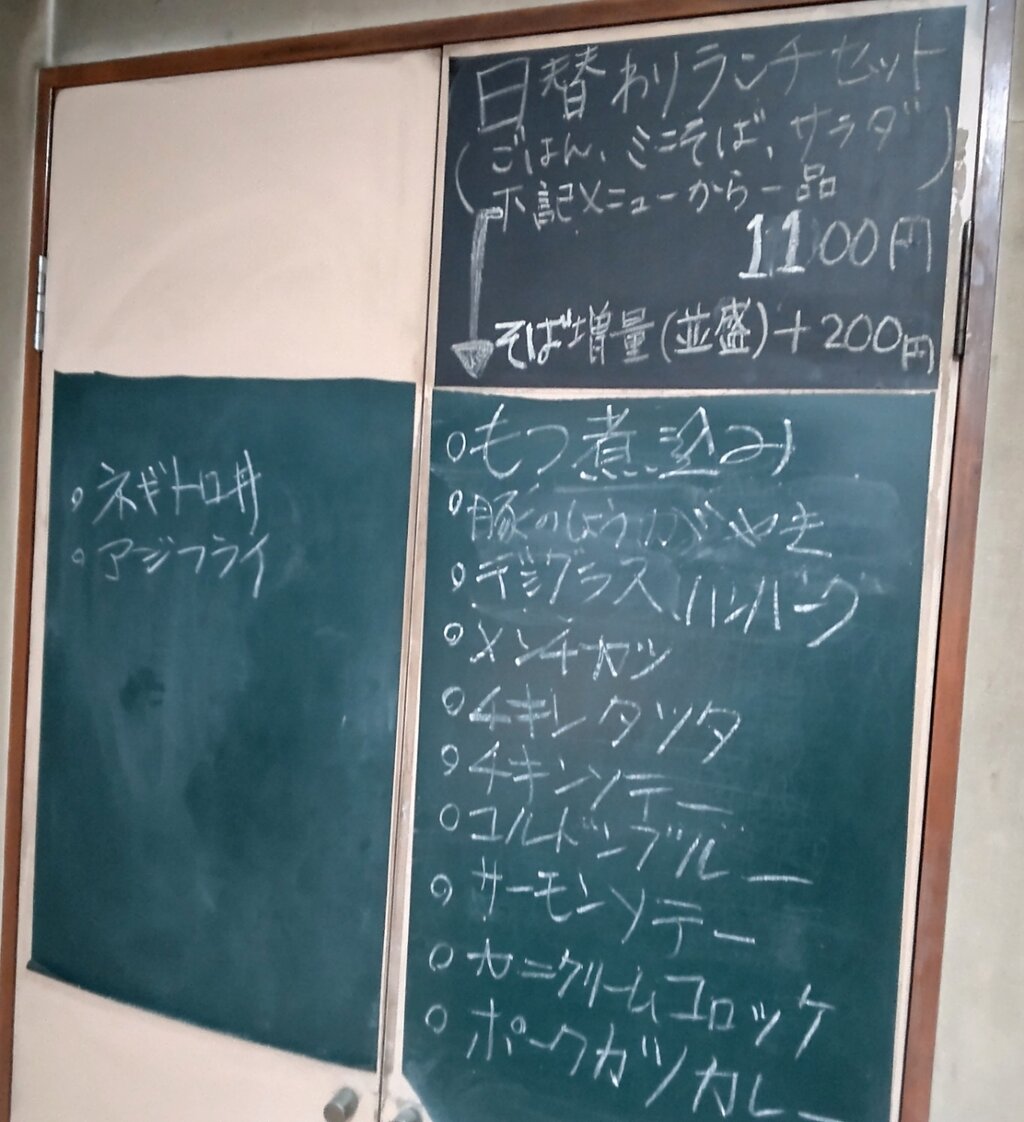 日替わりランチセット
(ごはん、ミニそば、サラダ
下記メニューから一品)
1100円
そば増量(並盛)+200円
○もつ煮込み
○豚のしょうがやき
○デミグラスハンバーグ
○メンチカツ
○チキンタツタ
○チキンソテー
○コルドンブルー
○サーモンソテー
○カニクリームコロッケ
○ポークカツカレー
○ネギトロ丼
○アジフライ